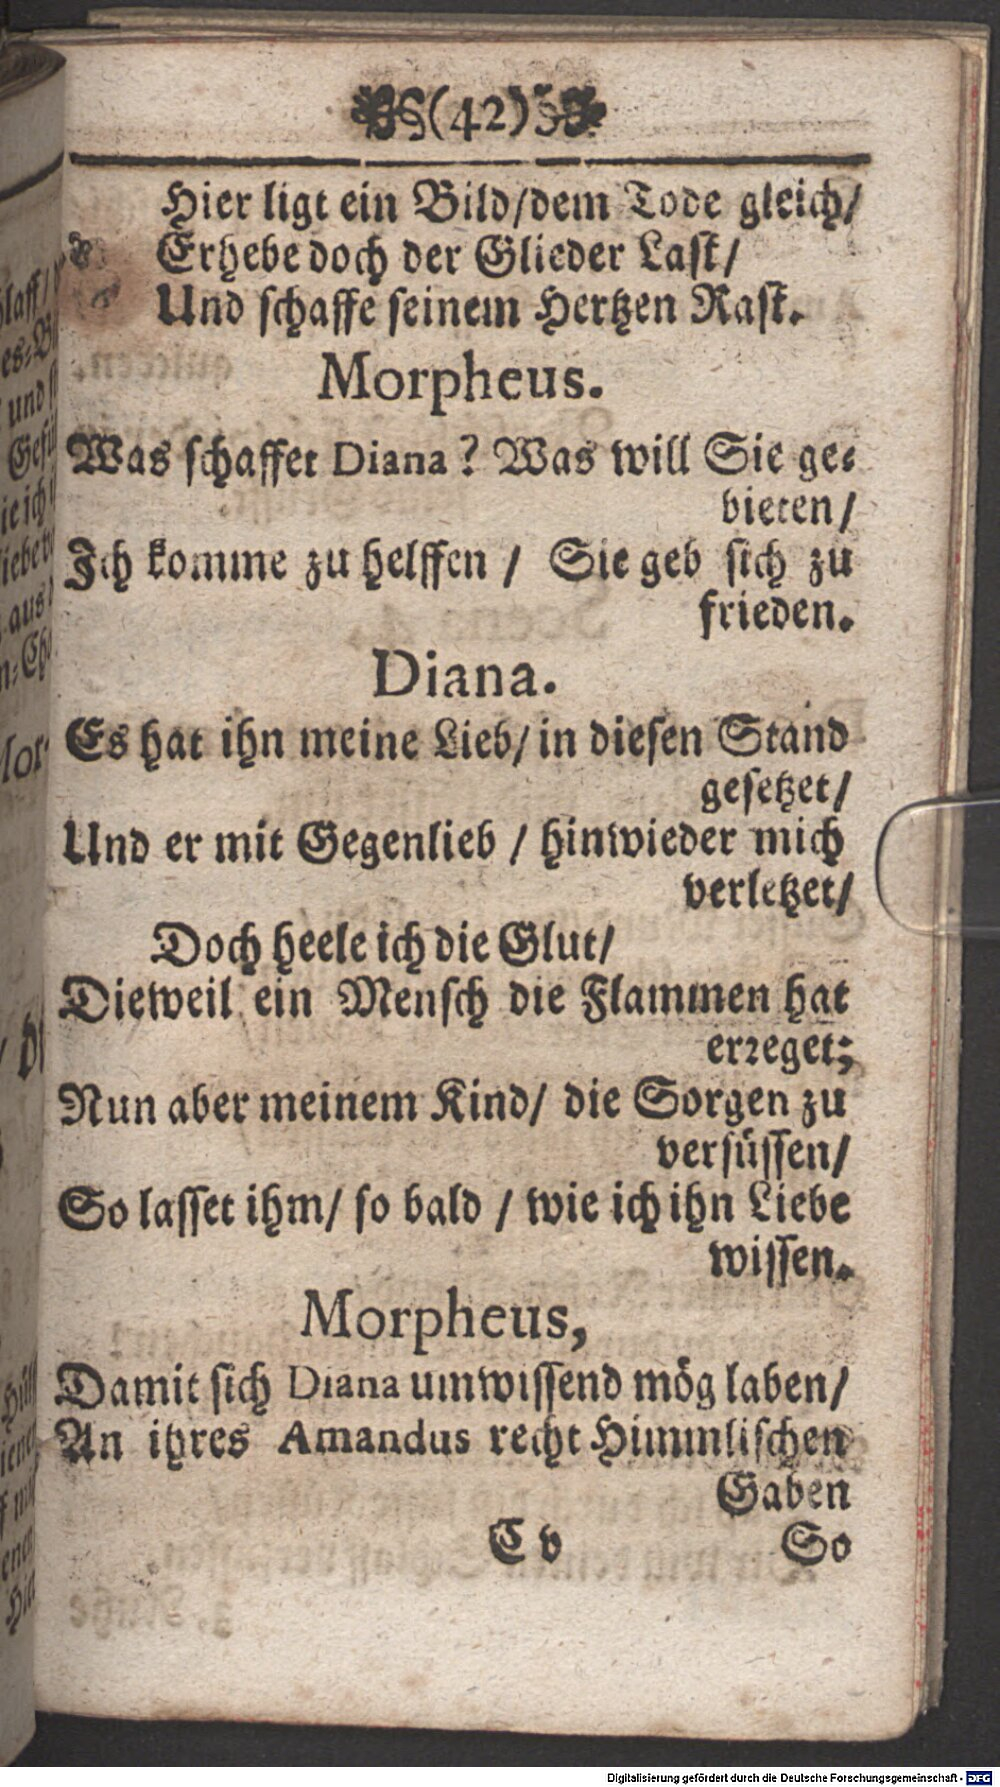 (42)
Hier ligt ein Bild/dem Tode gleich/
Erhebe doch der Glieder Last/
Und schaffe seinem Hertzen Rast.
Morpheus.
Was schaffet Diana? Was will Sie ge-
bieten/
Ich komme zu helffen / Sie geb sich zu
frieden.
Diana.
Es hat ihn meine Lieb/ in diesen Stand
gesetzet/
Und er mit Gegenlieb / hinwieder mich
verletzet/
Doch heele ich die Glut/
Dieweil ein Mensch die Flammen hat
erreget;
Nun aber meinem Kind/ die Sorgen zu
versüssen/
So lasset ihm/ so bald / wie ich ihn Liebe
wissen.
Morpheus,
Damit sich Diana umwissend mög laben/
An ihres Amandus recht Himmlischen
Gaben
C v So
Digitalisierung gefördert durch die Deutsche Forschungsgemeinschaft - DFG